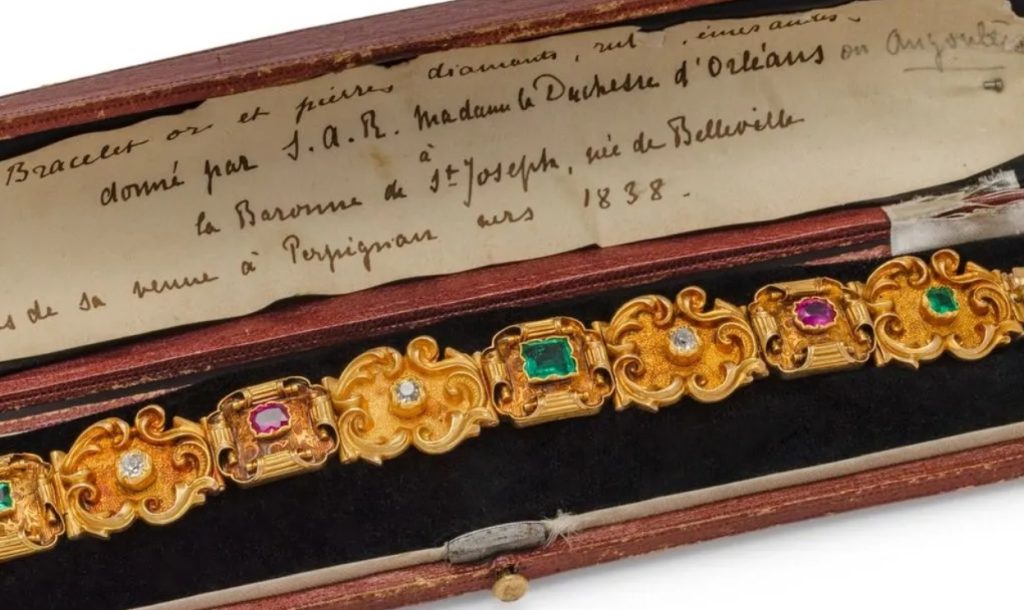 Bracelet or et pierres diamants, rub émeraudes
donné par S. A. R. Madame la Duchesse d'Orléans ou Angoulê
à
la Baronne de St Joseph, née de Belleville
de sa venue à Perpignan vers 1838.